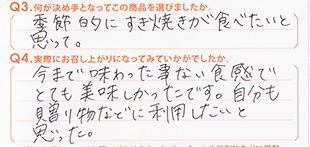 Q3.何が決め手となってこの商品を選びましたか。
季節的にすき焼きが食べたいと
思って。
Q4.実際にお召し上がりになってみていかがでしたか。
今まで味わった事ない食感で
とても美味しかったです。自分も
贈り物などに利用したいと
思った。